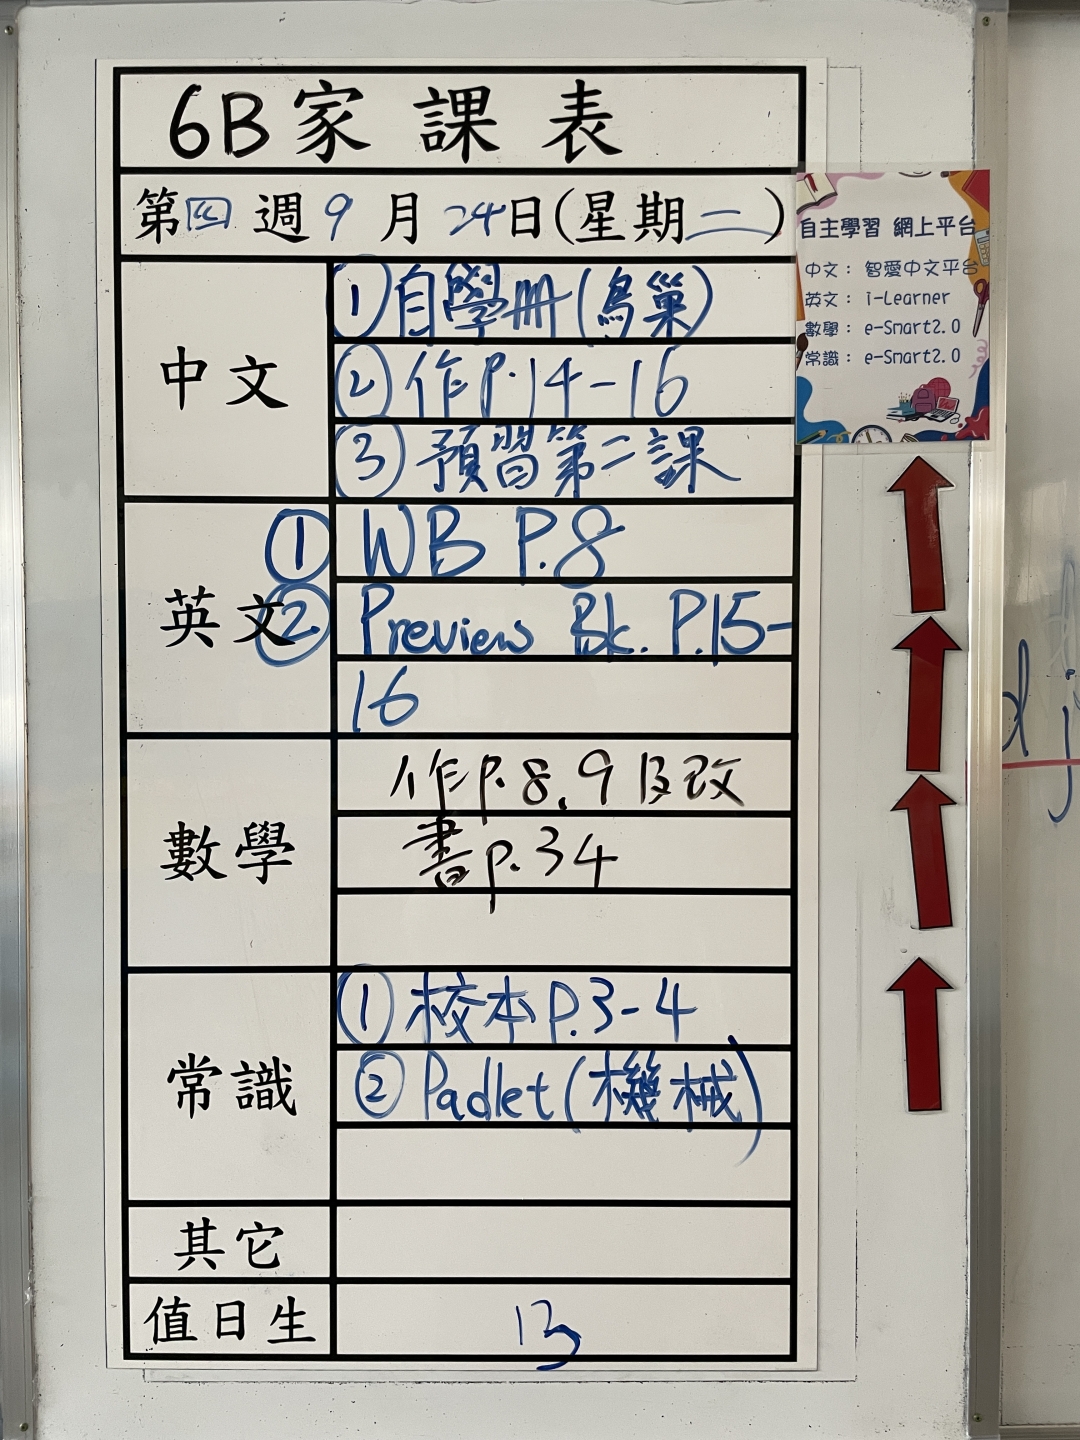 6B家課表
第四週9月24日(星期二)
中文
①自學冊(鳥巢)
②作P.14-16
③預習第二課
英文
①WB P.8
②Preview Bk. P.15-
16
數學
作p.8,9及改
書p.34
常識
①校本P.3-4
②Padlet(機械)
其它
值日生
13
自主學習 網上平台
中文：智愛中文平台
英文：i-Learner
數學：e-Smart2.0
常識：e-Smart2.0